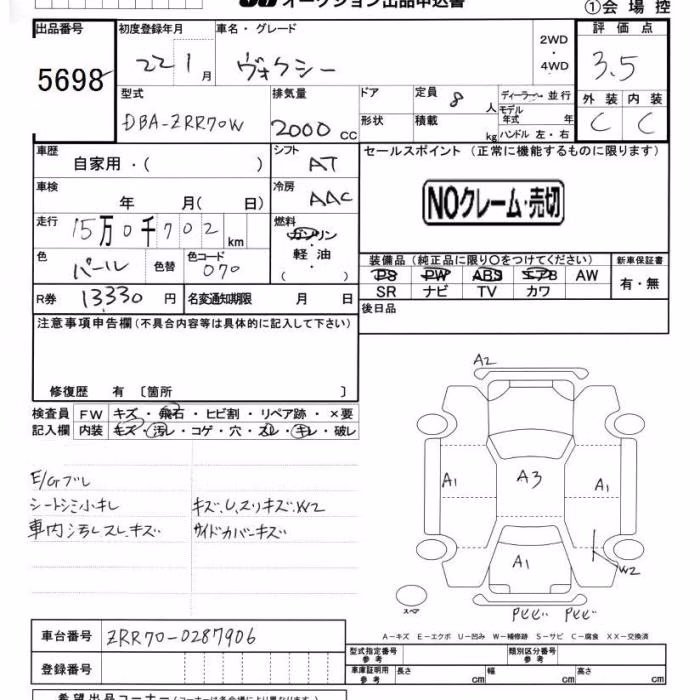 オークション出品申込書
①会場控
出品番号
5698
初度登録年月
22 1 月
車名・グレード
ヴォクシー
2WD
・
4WD
評価点
3.5
外装 内装
C C
型式
DBA-ZRR70W
排気量
2000 CC
ドア
形状
定員 8 人
積載 kg
ディーラー・並行
モデル
年式 年
ハンドル 左・右
車歴
自家用・( )
シフト
AT
セールスポイント (正常に機能するものに限ります)
NOクレーム・売切
車検
年 月( 日)
冷房
AAC
走行
15万0千702 km
燃料
ガソリン
・
軽油
( )
色
パール
色替
色コード
070
装備品 (純正品に限り○をつけてください)
PS PW ABS エアB AW
SR ナビ TV カワ
新車保証書
有・無
R券 13330 円
名変通知期限 月 日
後日品
注意事項申告欄 (不具合内容等は具体的に記入して下さい)
修復歴 有 〔箇所 〕
検査員
記入欄
FW キズ・飛石・ヒビ割・リペア跡・×要
内装 キズ・汚レ・コゲ・穴・スレ・キレ・破レ
E/Gブレ
シートシミ小キレ
車内汚レスレ.キズ
キズ.U.スリキズ.W2
サイドカバーキズ
A2
A1
A3
A1
A1
W2
スペア
Pビビ Pビビ
A－キズ E－エクボ U－凹み W－補修跡 S－サビ C－腐食 XX－交換済
車台番号 ZRR70-0287906
登録番号
型式指定番号
参考
類別区分番号
参考
車庫証明用
参考
長さ cm 幅 cm 高さ cm
希望出品コーナー